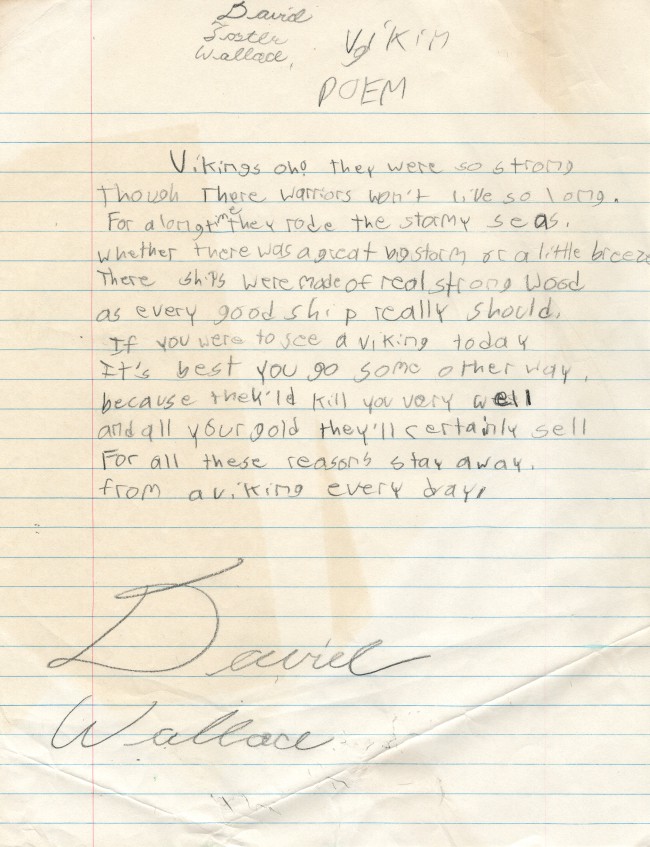 David
Foster
Wallace,
Vikin
POEM
Vikings oh! they were so strong
Though there warriors won't live so long.
For a long time they rode the stormy seas.
whether there was a great big storm or a little breeze
There ships were made of real strong wood
as every good ship really should.
If you were to see a viking today
It's best you go some other way,
because they'ld kill you very well
and all your gold they'll certainly sell
For all these reasons stay away.
from a viking every day,
David
Wallace